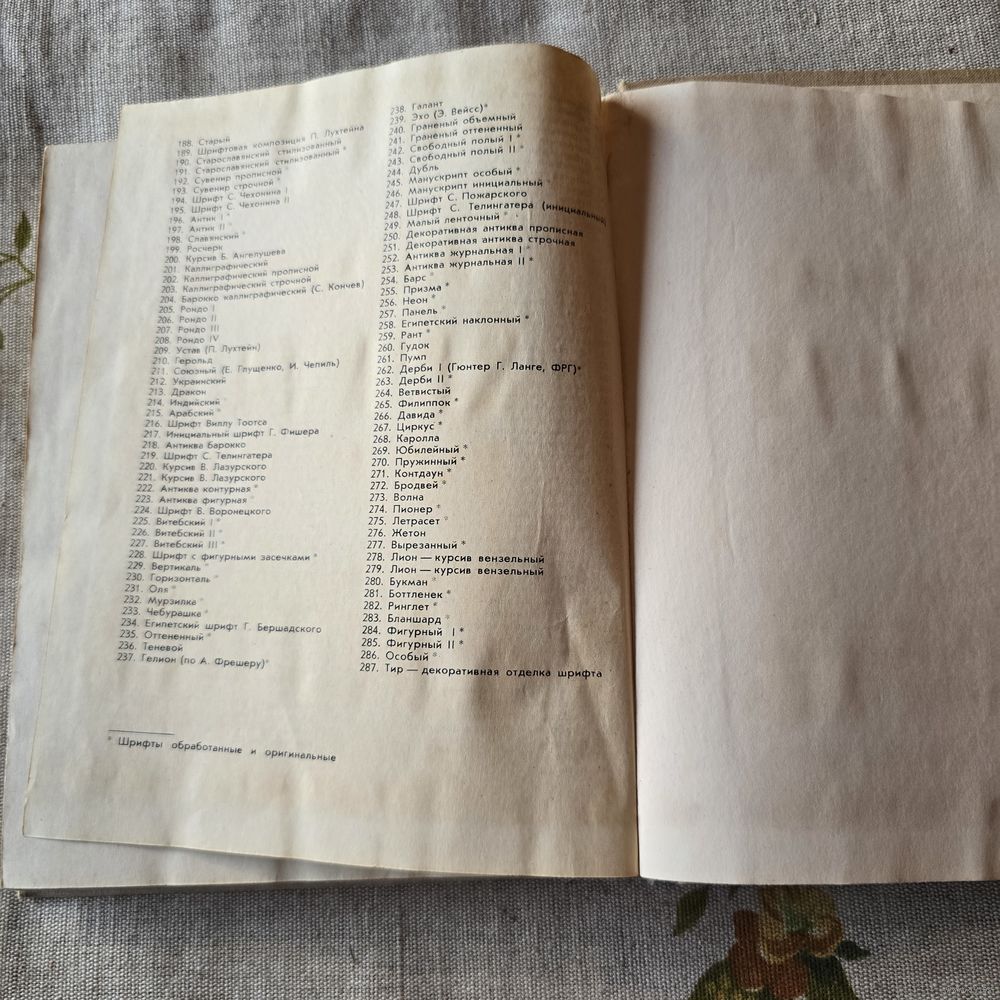 188. Старый
189. Шрифтовая композиция П. Лухтейна
190. Старославянский стилизованный
191. Старославянский стилизованный *
192. Сувенир прописной *
193. Сувенир строчной *
194. Шрифт С. Чехонина I
195. Шрифт С. Чехонина II
196. Антик I *
197. Антик II *
198. Славянский *
199. Росчерк
200. Курсив Б. Ангелушева
201. Каллиграфический
202. Каллиграфический прописной
203. Каллиграфический строчной
204. Барокко каллиграфический (С. Кончев)
205. Рондо I
206. Рондо II
207. Рондо III
208. Рондо IV
209. Устав (П. Лухтейн)
210. Герольд
211. Союзный (Е. Глущенко, И. Чепиль)
212. Украинский
213. Дракон
214. Индийский *
215. Арабский *
216. Шрифт Виллу Тоотса
217. Инициальный шрифт Г. Фишера
218. Антиква Барокко
219. Шрифт С. Телингатера
220. Курсив В. Лазурского
221. Курсив В. Лазурского
222. Антиква контурная *
223. Антиква фигурная *
224. Шрифт В. Воронецкого
225. Витебский I *
226. Витебский II *
227. Витебский III *
228. Шрифт с фигурными засечками *
229. Вертикаль *
230. Горизонталь *
231. Оля *
232. Мурзилка *
233. Чебурашка *
234. Египетский шрифт Г. Бершадского
235. Оттененный *
236. Теневой
237. Гелион (по А. Фрешеру)*
238. Галант
239. Эхо (Э. Вейсс)*
240. Граненый объемный
241. Граненый оттененный
242. Свободный полый I *
243. Свободный полый II *
244. Дубль
245. Манускрипт особый *
246. Манускрипт инициальный *
247. Шрифт С. Пожарского
248. Шрифт С. Телингатера (инициальный)
249. Малый ленточный *
250. Декоративная антиква прописная
251. Декоративная антиква строчная
252. Антиква журнальная I *
253. Антиква журнальная II *
254. Барс *
255. Призма *
256. Неон *
257. Панель *
258. Египетский наклонный *
259. Рант *
260. Гудок
261. Пумп
262. Дерби I (Гюнтер Г. Ланге, ФРГ)*
263. Дерби II *
264. Ветвистый
265. Филиппок *
266. Давида *
267. Циркус *
268. Каролла
269. Юбилейный *
270. Пружинный *
271. Контдаун *
272. Бродвей *
273. Волна
274. Пионер *
275. Летрасет *
276. Жетон
277. Вырезанный *
278. Лион — курсив вензельный
279. Лион — курсив вензельный
280. Букман *
281. Боттленек *
282. Ринглет *
283. Бланшард *
284. Фигурный I *
285. Фигурный II *
286. Особый *
287. Тир — декоративная отделка шрифта
* Шрифты обработанные и оригинальные